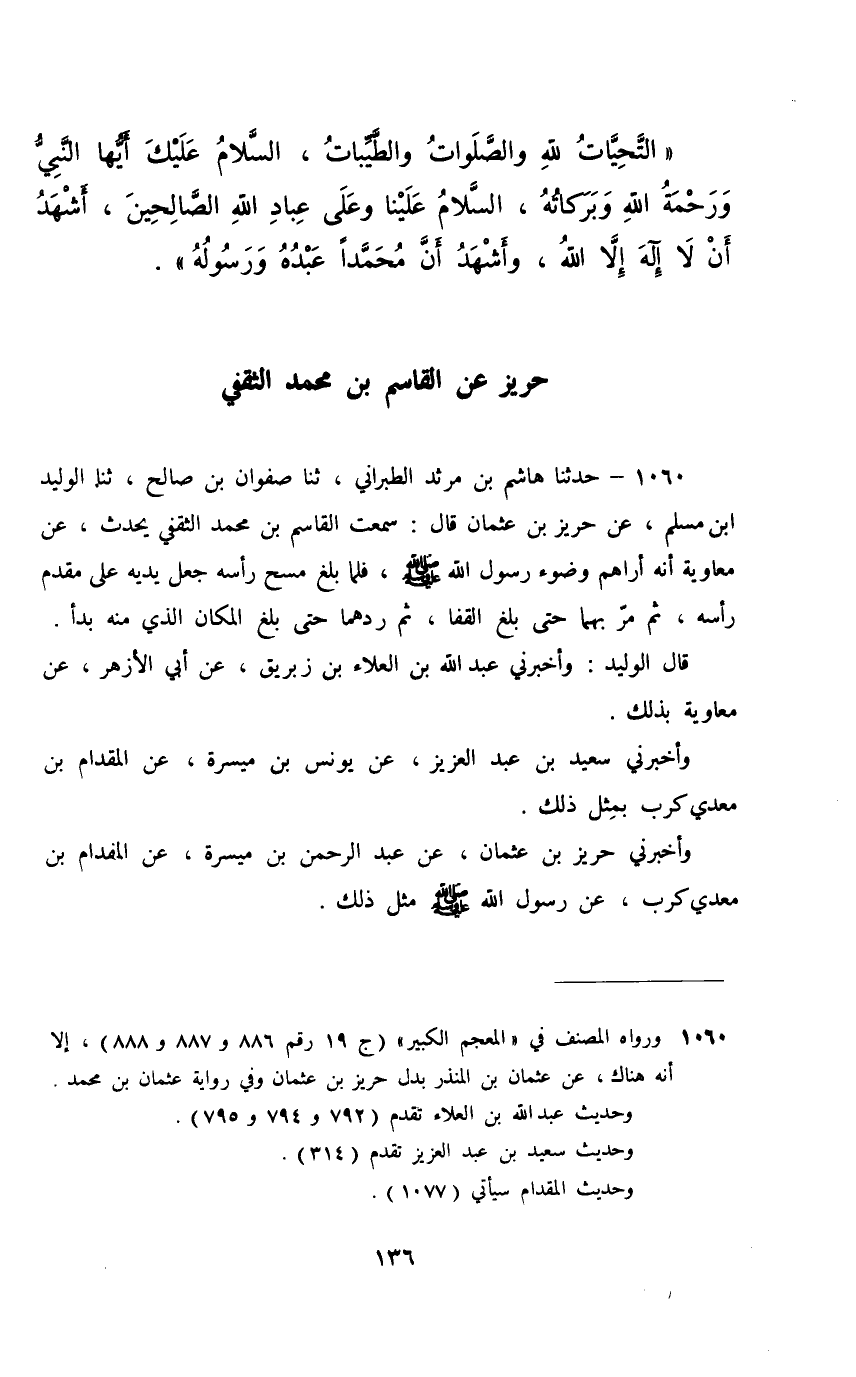 « التَّحِيَّاتُ للهِ والصَّلَواتُ والطَّيِّباتُ ، السَّلامُ عَلَيْكَ أَيُّها النَّبِيُّ
وَرَحْمَةُ اللهِ وَبَرَكاتُهُ ، السَّلامُ عَلَيْنا وعَلَى عِبادِ اللهِ الصَّالِحِينَ ، أَشْهَدُ
أَنْ لَا إِلَهَ إِلَّا اللهُ ، وأَشْهَدُ أَنَّ مُحَمَّداً عَبْدُهُ وَرَسُولُهُ » .
حريز عن القاسم بن محمد الثقفي
١٠٦٠ – حدثنا هاشم بن مرثد الطبراني ، ثنا صفوان بن صالح ، ثنا الوليد
ابن مسلم ، عن حريز بن عثمان قال : سمعت القاسم بن محمد الثقفي يحدث ، عن
معاوية أنه أراهم وضوء رسول الله ﷺ ، فلما بلغ مسح رأسه جعل يديه على مقدم
رأسه ، ثم مرّ بهما حتى بلغ القفا ، ثم ردهما حتى بلغ المكان الذي منه بدأ .
قال الوليد : وأخبرني عبد الله بن العلاء بن زبريق ، عن أبي الأزهر ، عن
معاوية بذلك .
وأخبرني سعيد بن عبد العزيز ، عن يونس بن ميسرة ، عن المقدام بن
معدي كرب بمِثل ذلك .
وأخبرني حريز بن عثمان ، عن عبد الرحمن بن ميسرة ، عن المقدام بن
معدي كرب ، عن رسول الله ﷺ مثل ذلك .
١٠٦٠ ورواه المصنف في «المعجم الكبير» (ج ١٩ رقم ٨٨٦ و ٨٨٧ و ٨٨٨) ، إلا
أنه هناك ، عن عثمان بن المنذر بدل حريز بن عثمان وفي رواية عثمان بن محمد .
وحديث عبد الله بن العلاء تقدم (٧٩٢ و ٧٩٤ و ٧٩٥) .
وحديث سعيد بن عبد العزيز تقدم (٣١٤) .
وحديث المقدام سيأتي (١٠٧٧) .
١٣٦